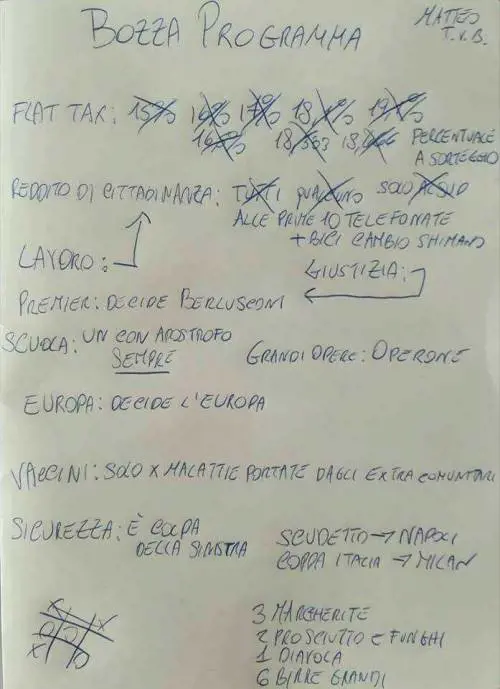 BOZZA PROGRAMMA
MATTEO
T.V.B.
FLAT TAX: 15% 16% 17% 18,% 19,%
18,553
PERCENTUALE
A SORTEGGIO
REDDITO DI CITTADINANZA: TUTTI QUALCUNO SOLO
ALLE PRIME 10 TELEFONATE
+ BICI CAMBIO SHIMANO
LAVORO:
GIUSTIZIA:
PREMIER: DECIDE BERLUSCONI
SCUOLA: UN CON APOSTROFO
SEMPRE
GRANDI OPERE: OPERONE
EUROPA: DECIDE L'EUROPA
VACCINI: SOLO X MALATTIE PORTATE DAGLI EXTRA COMUNITARI
SICUREZZA: È COLPA
DELLA SINISTRA
SCUDETTO → NAPOLI
COPPA ITALIA → MILAN
3 MARGHERITE
2 PROSCIUTTO E FUNGHI
1 DIAVOLA
6 BIRRE GRANDI